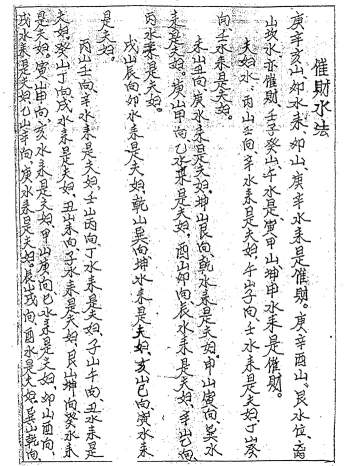 催財水法
庚辛亥山卯水來、卯山、庚辛水來是催財。庚、辛酉山。艮水位、离
山坎水亦催財、壬子癸山午水是、寅甲山坤申水來是催財。
夫婦水、丙山壬向、辛水來是夫婦、午山子向、壬水來是夫婦丁山癸
向壬水來是夫婦。
未山丑向、庚水來是夫婦、坤山艮向、乾水來是夫婦、申山寅向、癸水
來是夫婦。庚山甲向乙水來是夫婦、酉山卯向辰水來是夫婦、辛山乙向
丙水來是夫婦。
戌山辰向卯水來是夫婦、乾山巽向坤水來是夫婦、亥山巳向寅水來
是夫婦。
丙山壬向、辛水來是夫婦、壬山丙向、丁水來是夫婦、子山午向、丑水來是
夫婦、癸山丁向、戌水來是夫婦、丑山未向子水來是夫婦、艮山坤向癸水來
是夫婦、寅山申向、亥水來是夫婦、甲山庚向巳水來是夫婦、卯山酉向、
戌水來是夫婦、乙山辛向、庚水來是夫婦。辰山戌向、酉水是夫婦、巽山乾向、